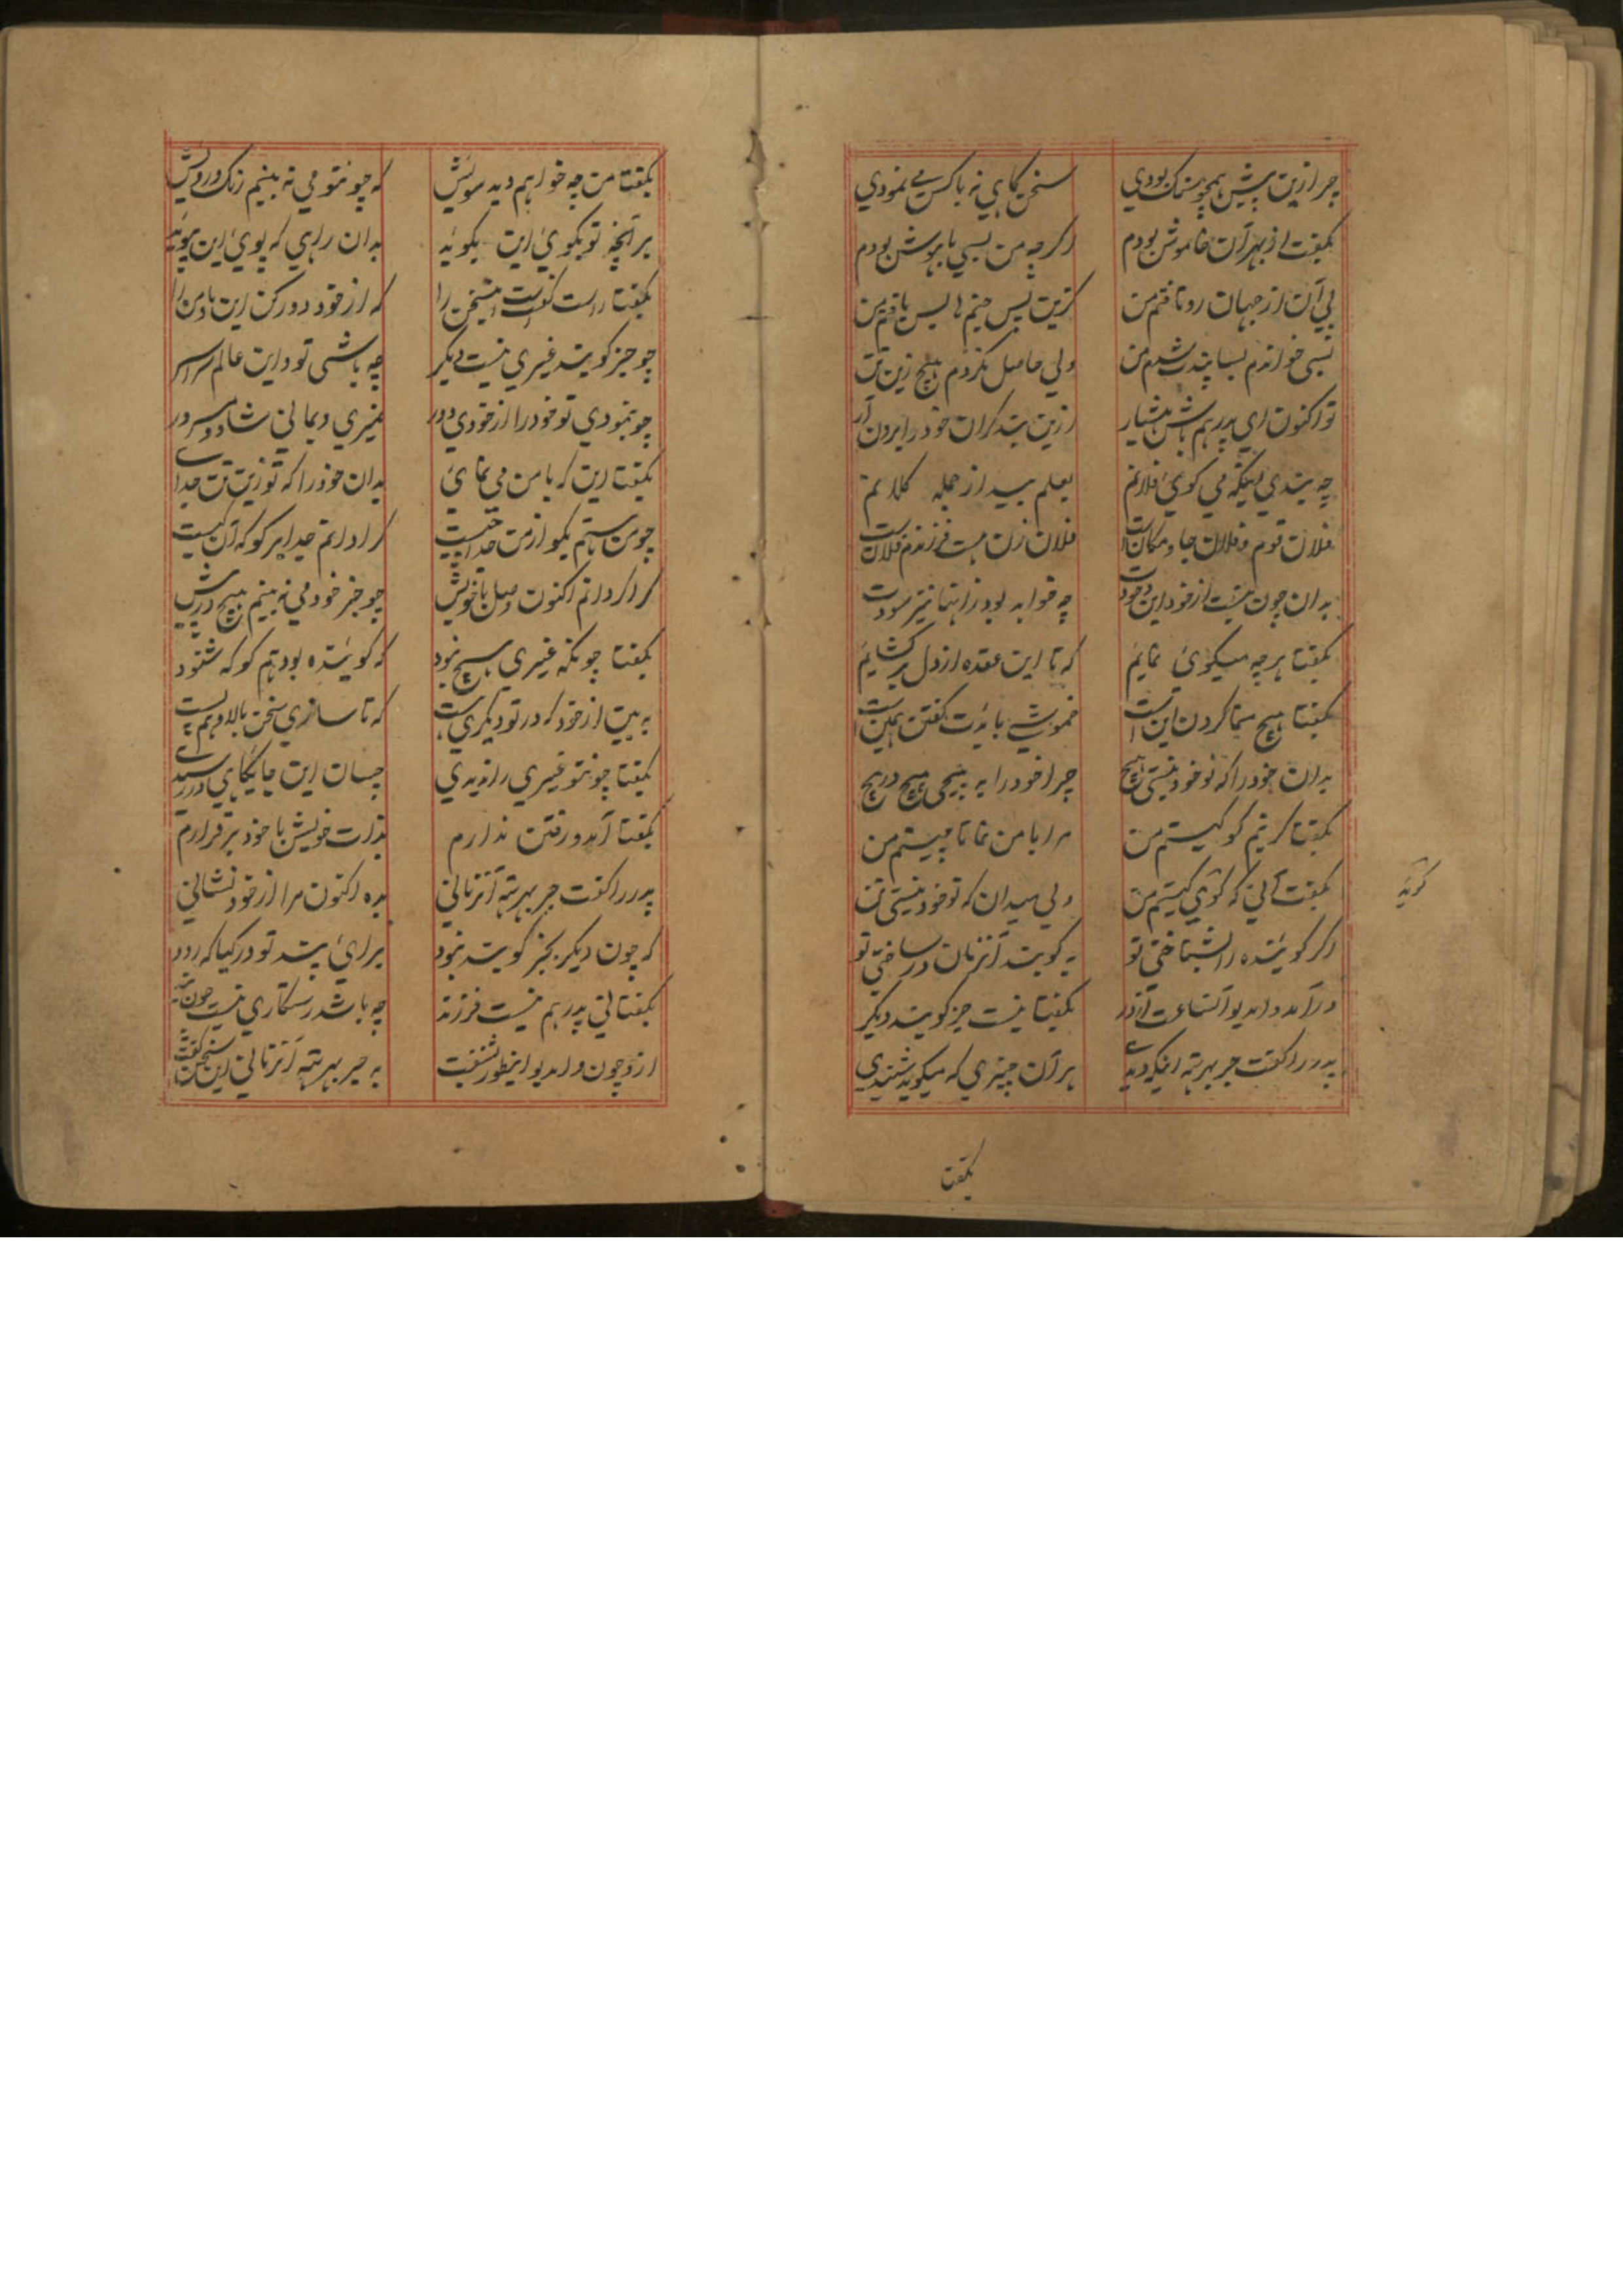 چرا زین پیش همچو سنک بودی سخن کاهی نه باکس می نمودی
بکفت از بهر آن خاموش بودم اکرچه من بسی باهوش بودم
پی آن از جهان رو تافتم من کزین پس جنم یافتم من
بسی خواندم بسا پند شدم من ولی حاصل نکردم هیچ زین تن
تو اکنون ای پدر هم باش هشیار ازین بند کران خود را برون آر
چه بندی اینکه می کوی فلانم بعلم بید از جمله کلانم
فلان قوم و فلان جا و مکانست فلان زن هست فرزندم فلانست
بدان چون نیست از خود این وجودت چه خواهد بود زانها نیز سودت
بکفتا هرچه میکوی نمایم که تا این عقده از دل بر کشایم
بکفتا هیچ سمتا کردن اینست خموشی بایدت کفتن همین است
بدان خود را که تو خود نیستی هیچ چرا خود را به پیچی هیچ در هیچ
بکفتا کر نیم کو کیستم من مرا با من نما تا چیستم من
بکفت آنی که کوئی کیستم من ولی میدان که تو خود نیستی تن
اکر کوینده را بشناختی تو به کویند آنزمان در ساختی تو
درآمد والدیو آنساعت از در بکفتا نیست جز کوینده دیکر
پدر را کفت جربهرته اینکه دیدی هر آن چیزی که میکوید شنیدی
کوید
بکفتا
بکفتا من چه خواهم دید سویش که چو نتو می نه بینم رنک و رویش
برآنچه تو بکوی این بکوید بدان راهی که پوی این بپوید
بکفتا راست کفت است این سخن را که از خود دور کن این ما و من را
چو جز کوینده غیری نیست دیکر چه باشی تو در این عالم سراسر
چو نمودی تو خود را از خودی دور نمیری و بمانی شاد و مسرور
بکفتا این که با من می نمای بدان خود را که تو زین تن جدای
چو من هستم بکو از من جدا چیست کرا دانم جدا بر کو که آن کیست
کرا دانم اکنون وصل با خویش چو جز خود می نه بینم هیچ در پیش
بکفتا چونکه غیری هیچ نبود که کوینده بود هم کو که شنود
به بین از خود که در تو دیکری هست که تا سازی سخن بالا و هم پست
بکفتا چو نتو غیری را ندیدی چسان این جایکاهی در رسیدی
بکفتا آمد و رفتن ندارم بذات خویش با خود برقرارم
پدر را کفت جربهرته آنزمانی بده اکنون مرا از خود نشانی
که چون دیکر بجز کوینده نبود برای پند تو در کیا که رود
بکفتا نی پدر هم نیست فرزند چه باشد رستکاری نیست چون بند
ازو چون والدیو اینطور بشنفت به جربهرته آنزمانی این سخن کفت